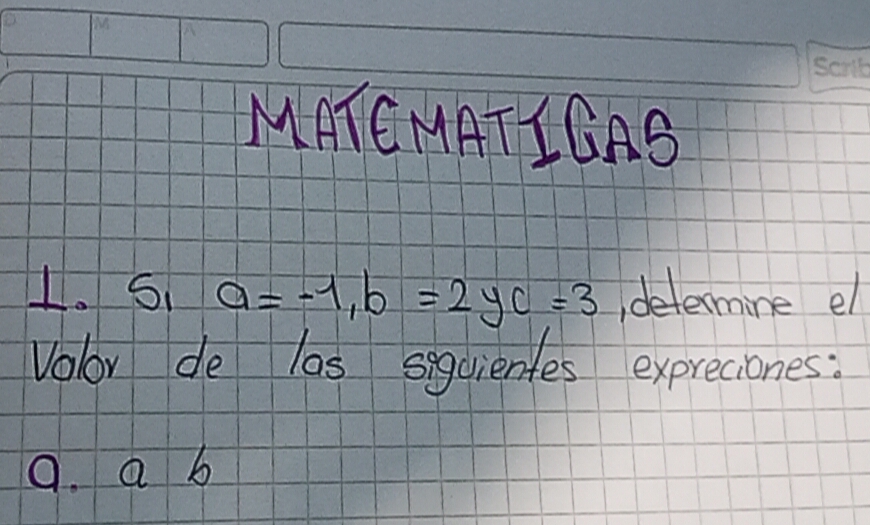 D M A
Scrib
MATEMATICAS
1. Si a = -1, b = 2 y c = 3, determine el
Valor de las siguientes expreciones:
a. a b